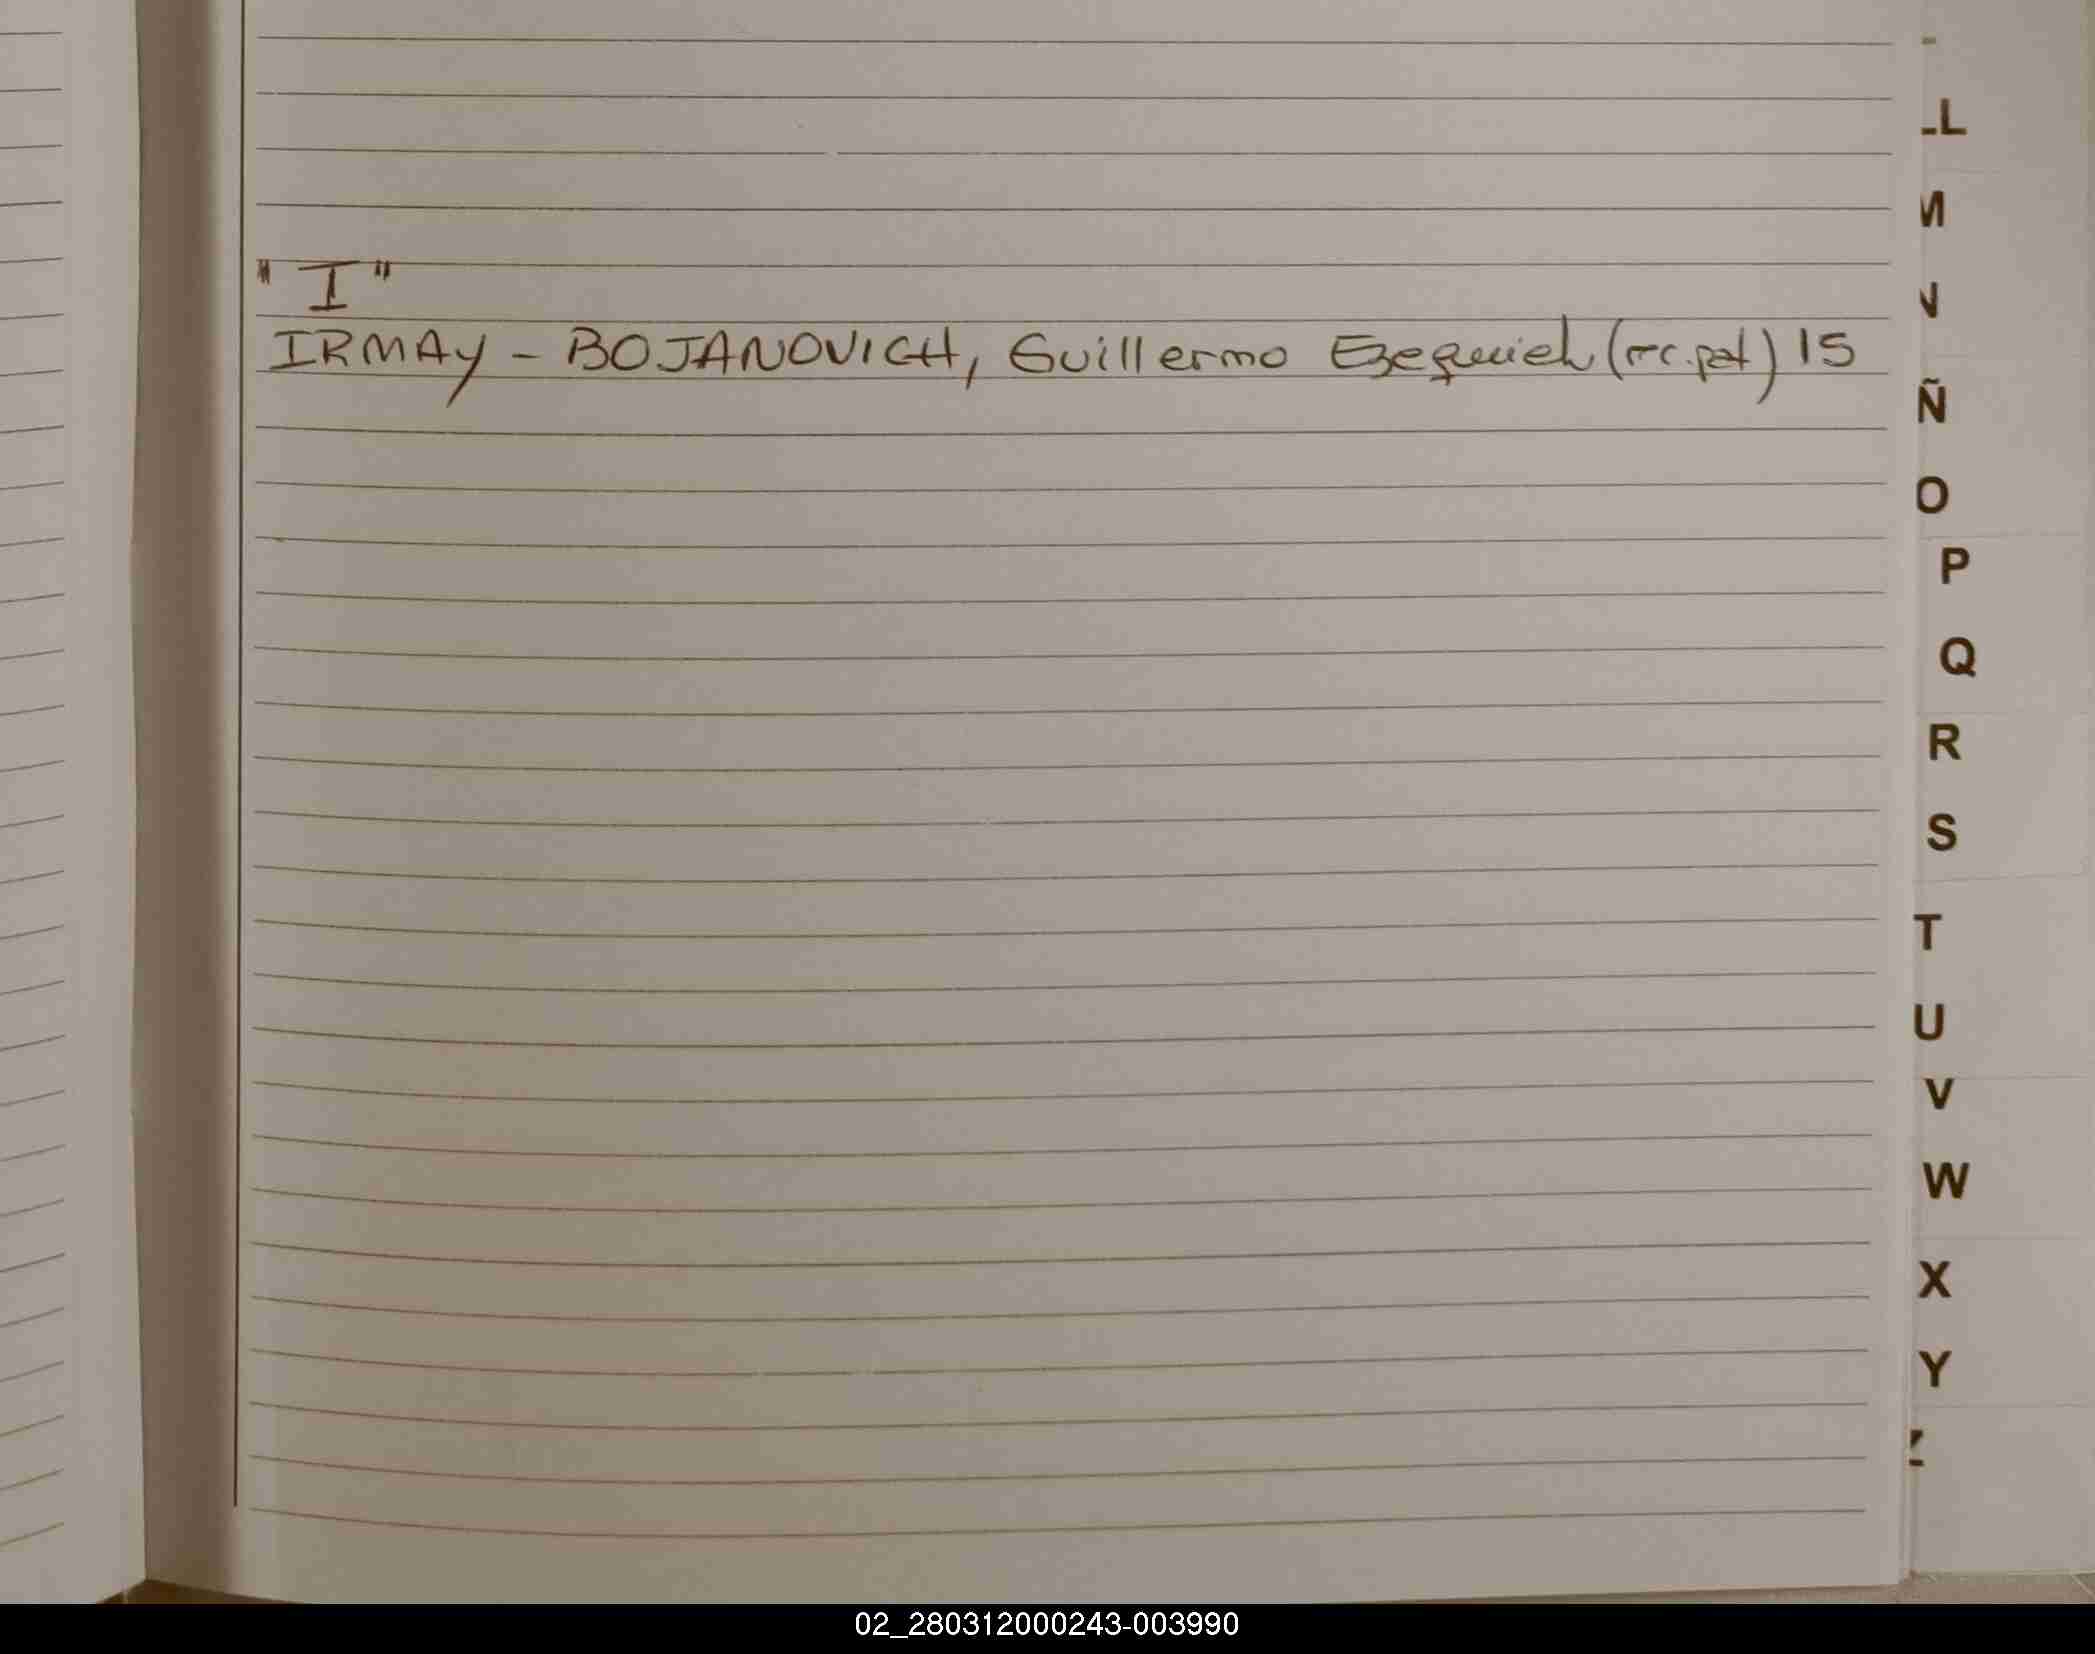 LL
M
N
"I"
IRMAY - BOJANOVICH, Guillermo Ezequiel (rec.pat) 15
Ñ
O
P
Q
R
S
T
U
V
W
X
Y
Z
02_280312000243-003990